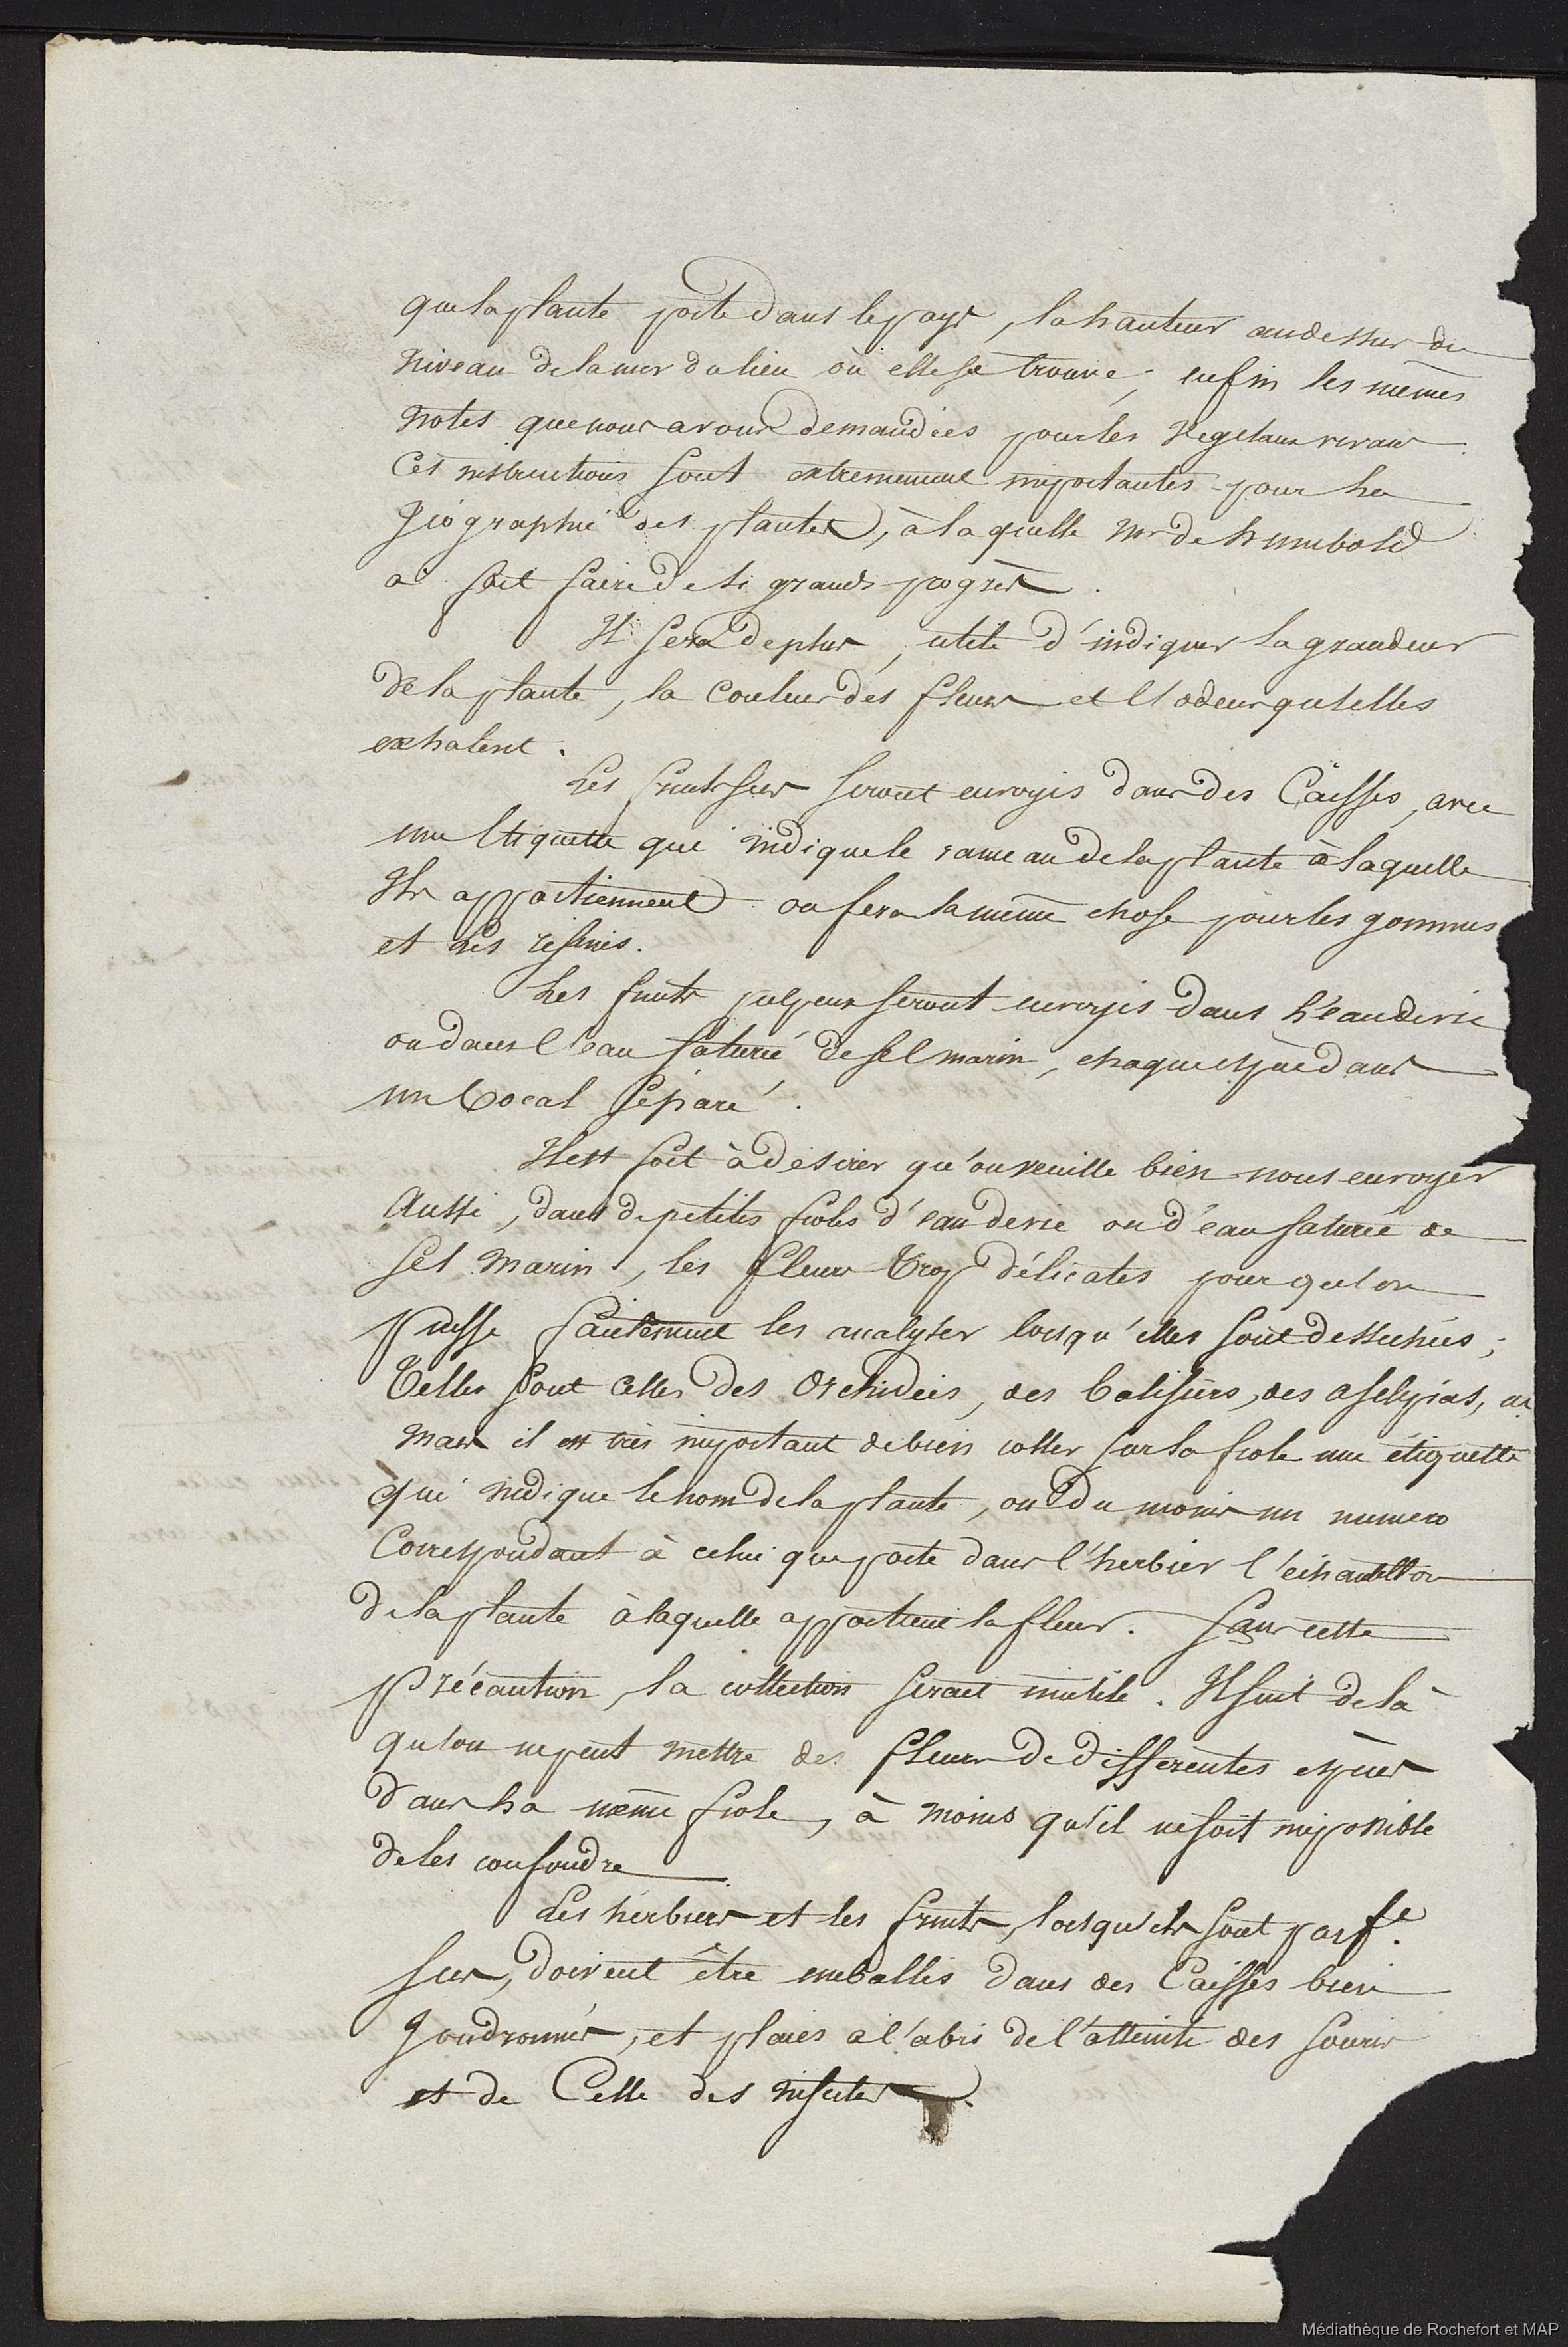 que la plante porte dans le pays, la hauteur audessus du
niveau de la mer du lieu où elle se trouve; enfin les mêmes
notes que nous avons demandées pour les vegetaux vivans.
Ces instructions sont extremement importantes pour la
géographie des plantes, à laquelle Mr de humbold
a fait faire de si grands progrès.
Il sera de plus, utile d'indiquer la grandeur
de la plante, la Couleur des fleurs et l'odeur qu'elles
exhalent.
Les fruits secs seront envoyés dans des Caisses, avec
une Etiquette qui indique le rameau de la plante à laquelle
Ils appartiennent. on fera la même chose pour les gommes
et les résines.
Les fruits pulpeux seront envoyés dans l'eau de vie
ou dans l'eau saturée de sel marin, chaque espèce dans
un bocal séparé.
Il est fort à desirer qu'on veuille bien nous envoyer
Aussi, dans de petites fioles d'eau de vie ou d'eau saturée de
sel marin, les fleurs trop délicates pour qu'on
puisse facilement les analyser lorsqu'elles sont dessechées;
Telles sont celles des Orchidées, des balisiers, des asclepias, &a
mais il est très important de bien coller sur la fiole une étiquette
qui indique le nom de la plante, ou du moins un numero
Correspondant à celui que porte dans l'herbier l'échantillon
de la plante à laquelle appartient la fleur. Sans cette
précaution, la collection serait inutile. Il suit de là
qu'on ne peut mettre des fleurs de differentes espèces
dans la même fiole, à moins qu'il ne soit impossible
de les confondre.
Les herbiers et les fruits, lorsqu'ils sont parf.te
secs, doivent être emballés dans des Caisses bien
goudronnées, et placés a l'abri de l'atteinte des souris
et de Celle des insectes.
Médiathèque de Rochefort et MAP